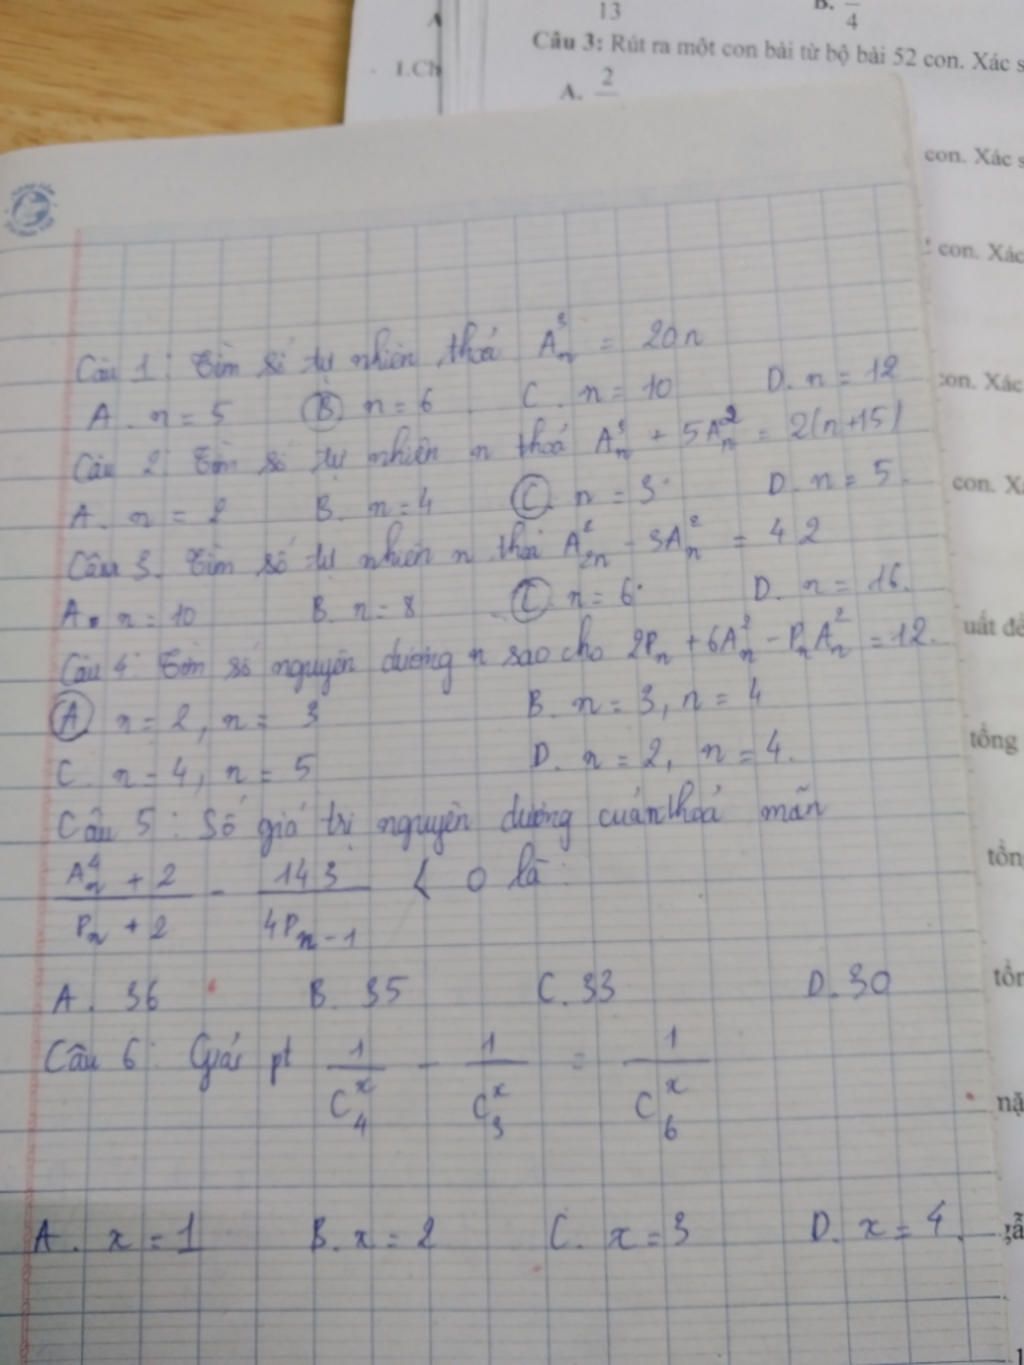 13
B. 4
Câu 3: Rút ra một con bài từ bộ bài 52 con. Xác s
1.Ch
A. 2
con. Xác s
con. Xác
con. Xác
con. X
uất để
tổng
tồn
tổn
nặ
gẫ
Câu 1: Tìm số tự nhiên thoả A³ₙ = 20n
A. n = 5 B. n = 6 C. n = 10 D. n = 12
Câu 2: Tìm số tự nhiên n thoả A³ₙ + 5A²ₙ = 2(n+15)
A. n = 2 B. n = 4 C. n = 3 D. n = 5
Câu 3. Tìm số tự nhiên n thoả A²₂ₙ - 3A²ₙ = 42
A. n = 10 B. n = 8 C. n = 6 D. n = 16.
Câu 4: Tìm số nguyên dương n sao cho 2Pₙ + 6A²ₙ - PₙA²ₙ = 12.
A n = 2, n = 3 B. n = 3, n = 4
C. n = 4, n = 5 D. n = 2, n = 4.
Câu 5: Số giá trị nguyên dương của n thoả mãn
A⁴ₙ + 2 / Pₙ + 2 - 143 / 4Pₙ - 1 < 0 là:
A. 36 B. 35 C. 33 D. 30
Câu 6: Giải pt 1/Cˣ₄ - 1/Cˣ₅ = 1/Cˣ₆
A. x = 1 B. x = 2 C. x = 3 D. x = 4.